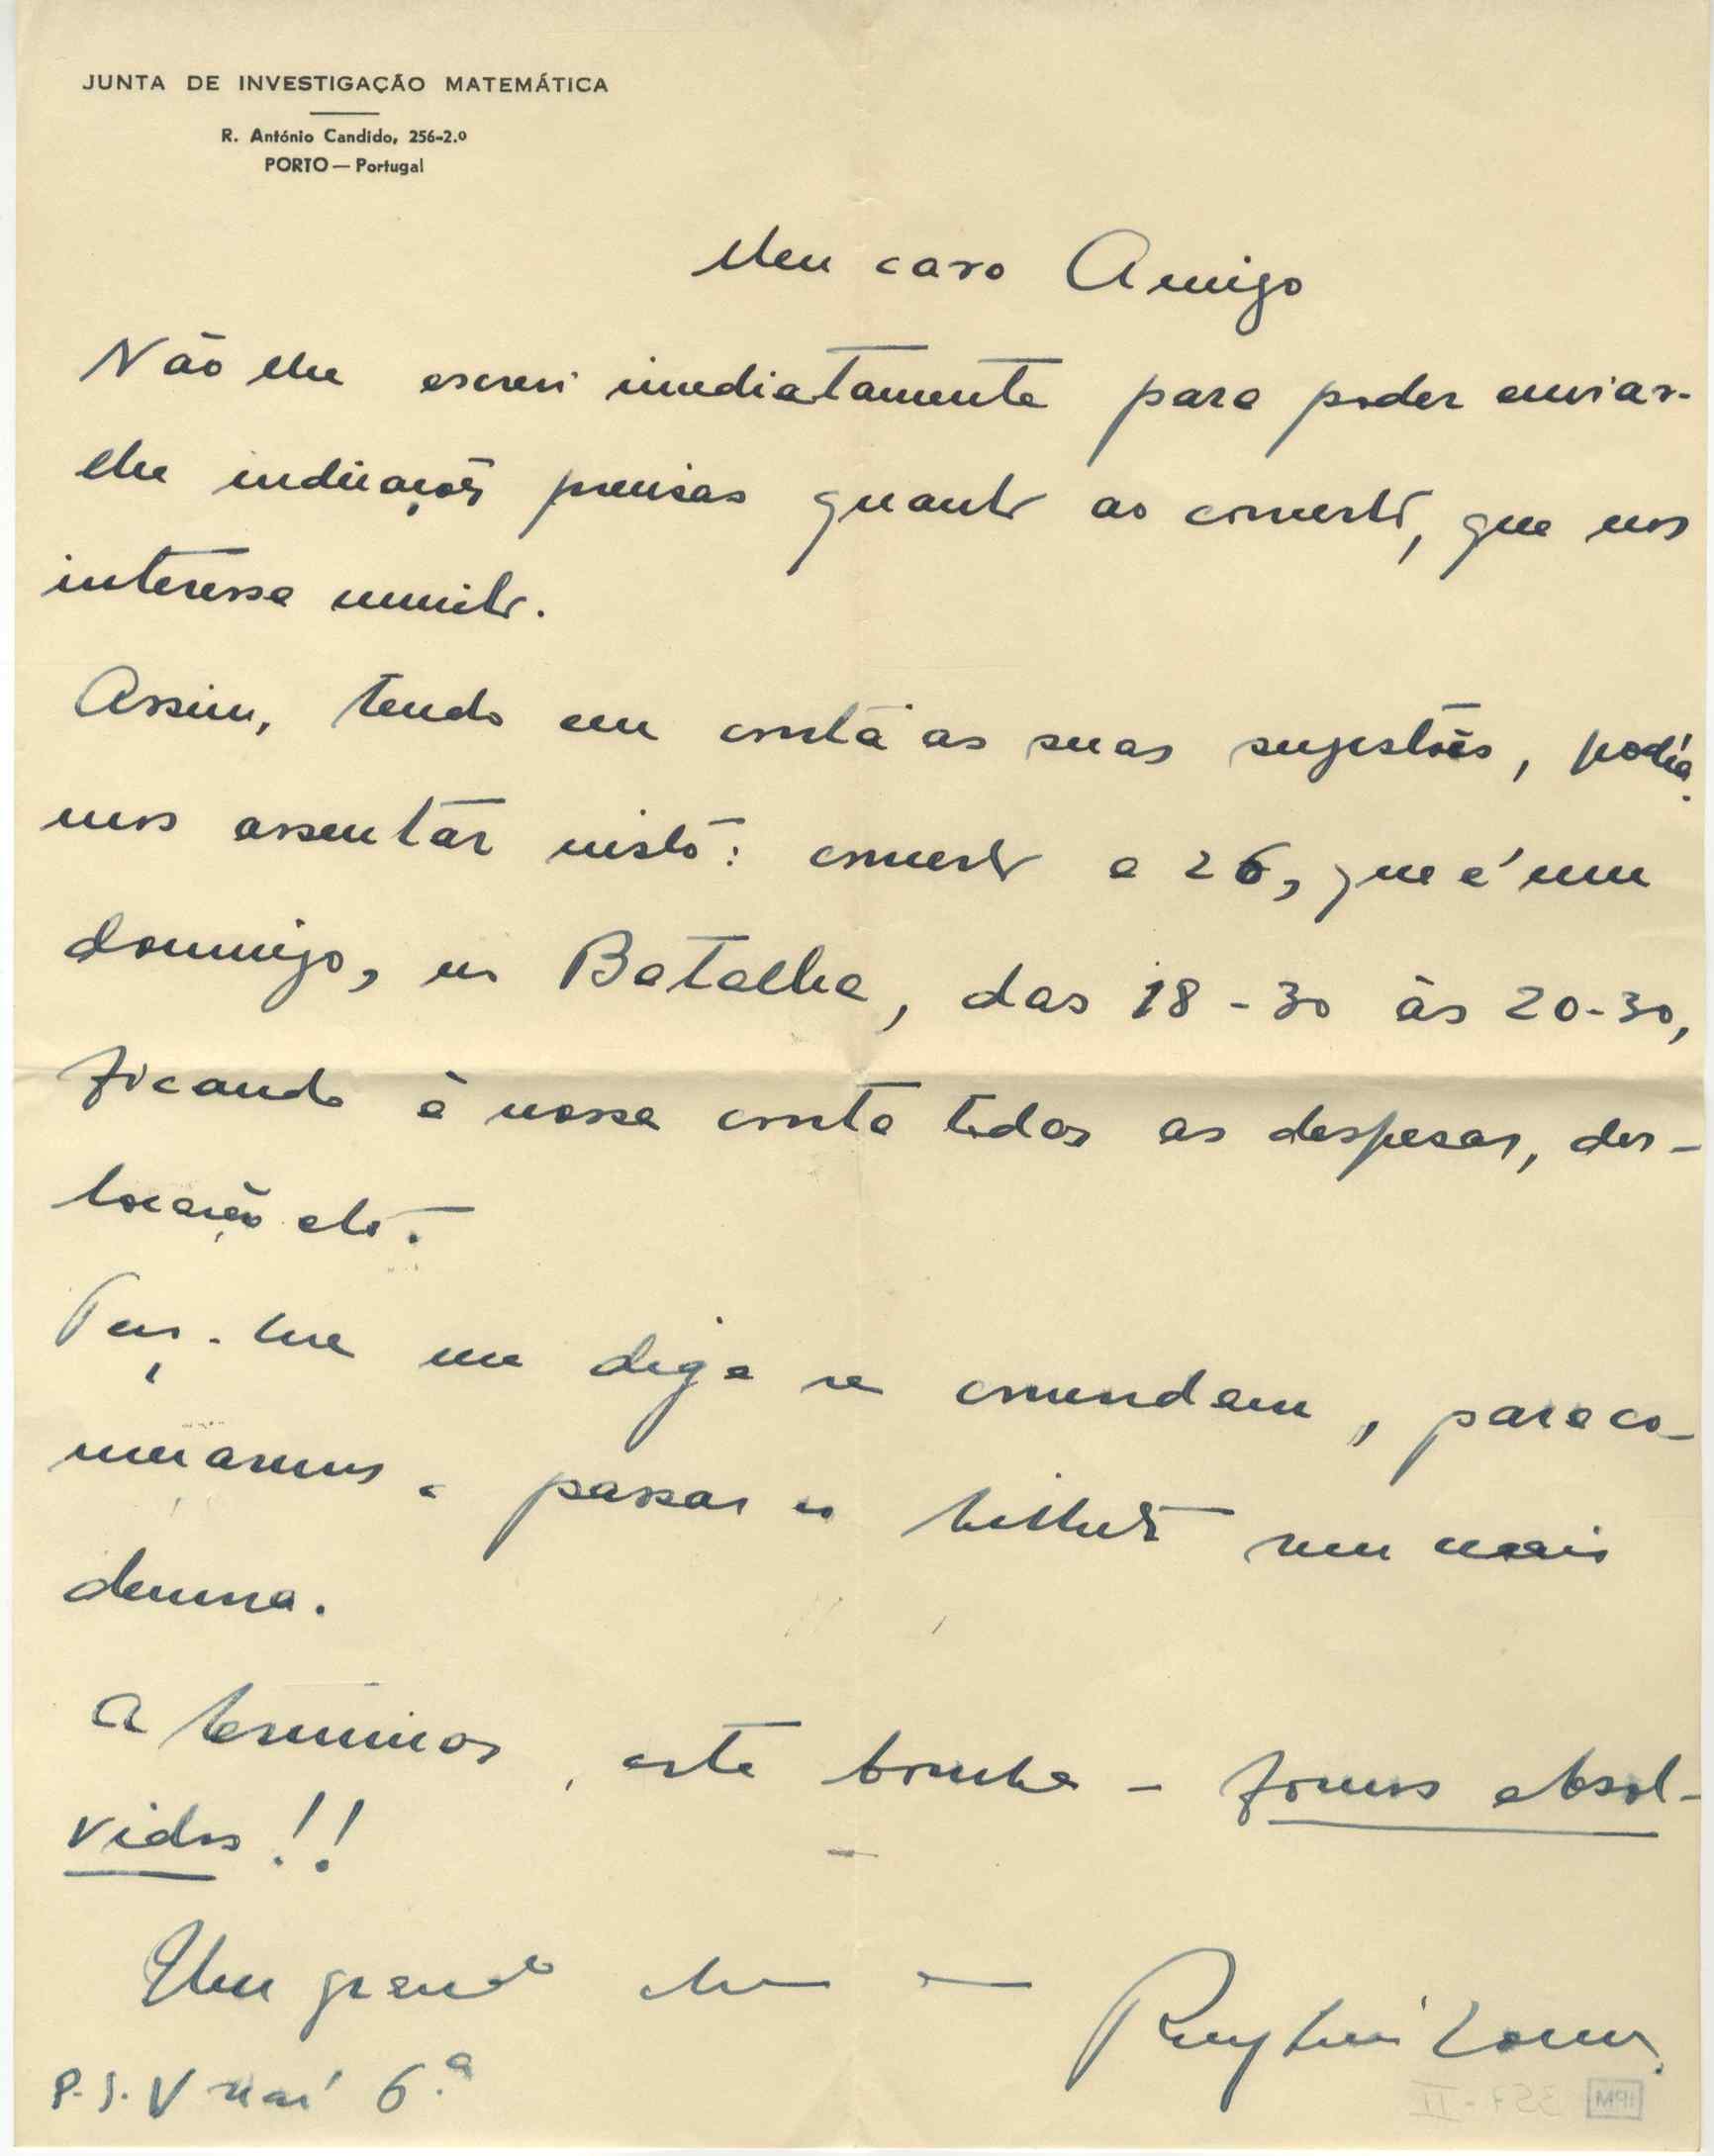 JUNTA DE INVESTIGAÇÃO MATEMÁTICA
R. António Candido, 256-2.º
PORTO — Portugal
Meu caro Amigo
Não lhe escrevi imediatamente para poder enviar-
lhe indicações precisas quanto ao concerto, que nos
interessa muito.
Assim, tendo em conta as suas sugestões, podía-
mos assentar nisto: concerto a 26, que é um
domingo, no Batalha, das 18-30 às 20-30,
ficando à nossa conta todas as despesas, des-
locação etc.
Peço-lhe me diga se concordam, para co-
meçarmos a passar os bilhetes sem mais
demora.
A terminar, esta bomba - fomos absol-
vidos!!
Um grande abraço
Ruy Luís Gomes
P.S. V 6.ª
IPM 357-II